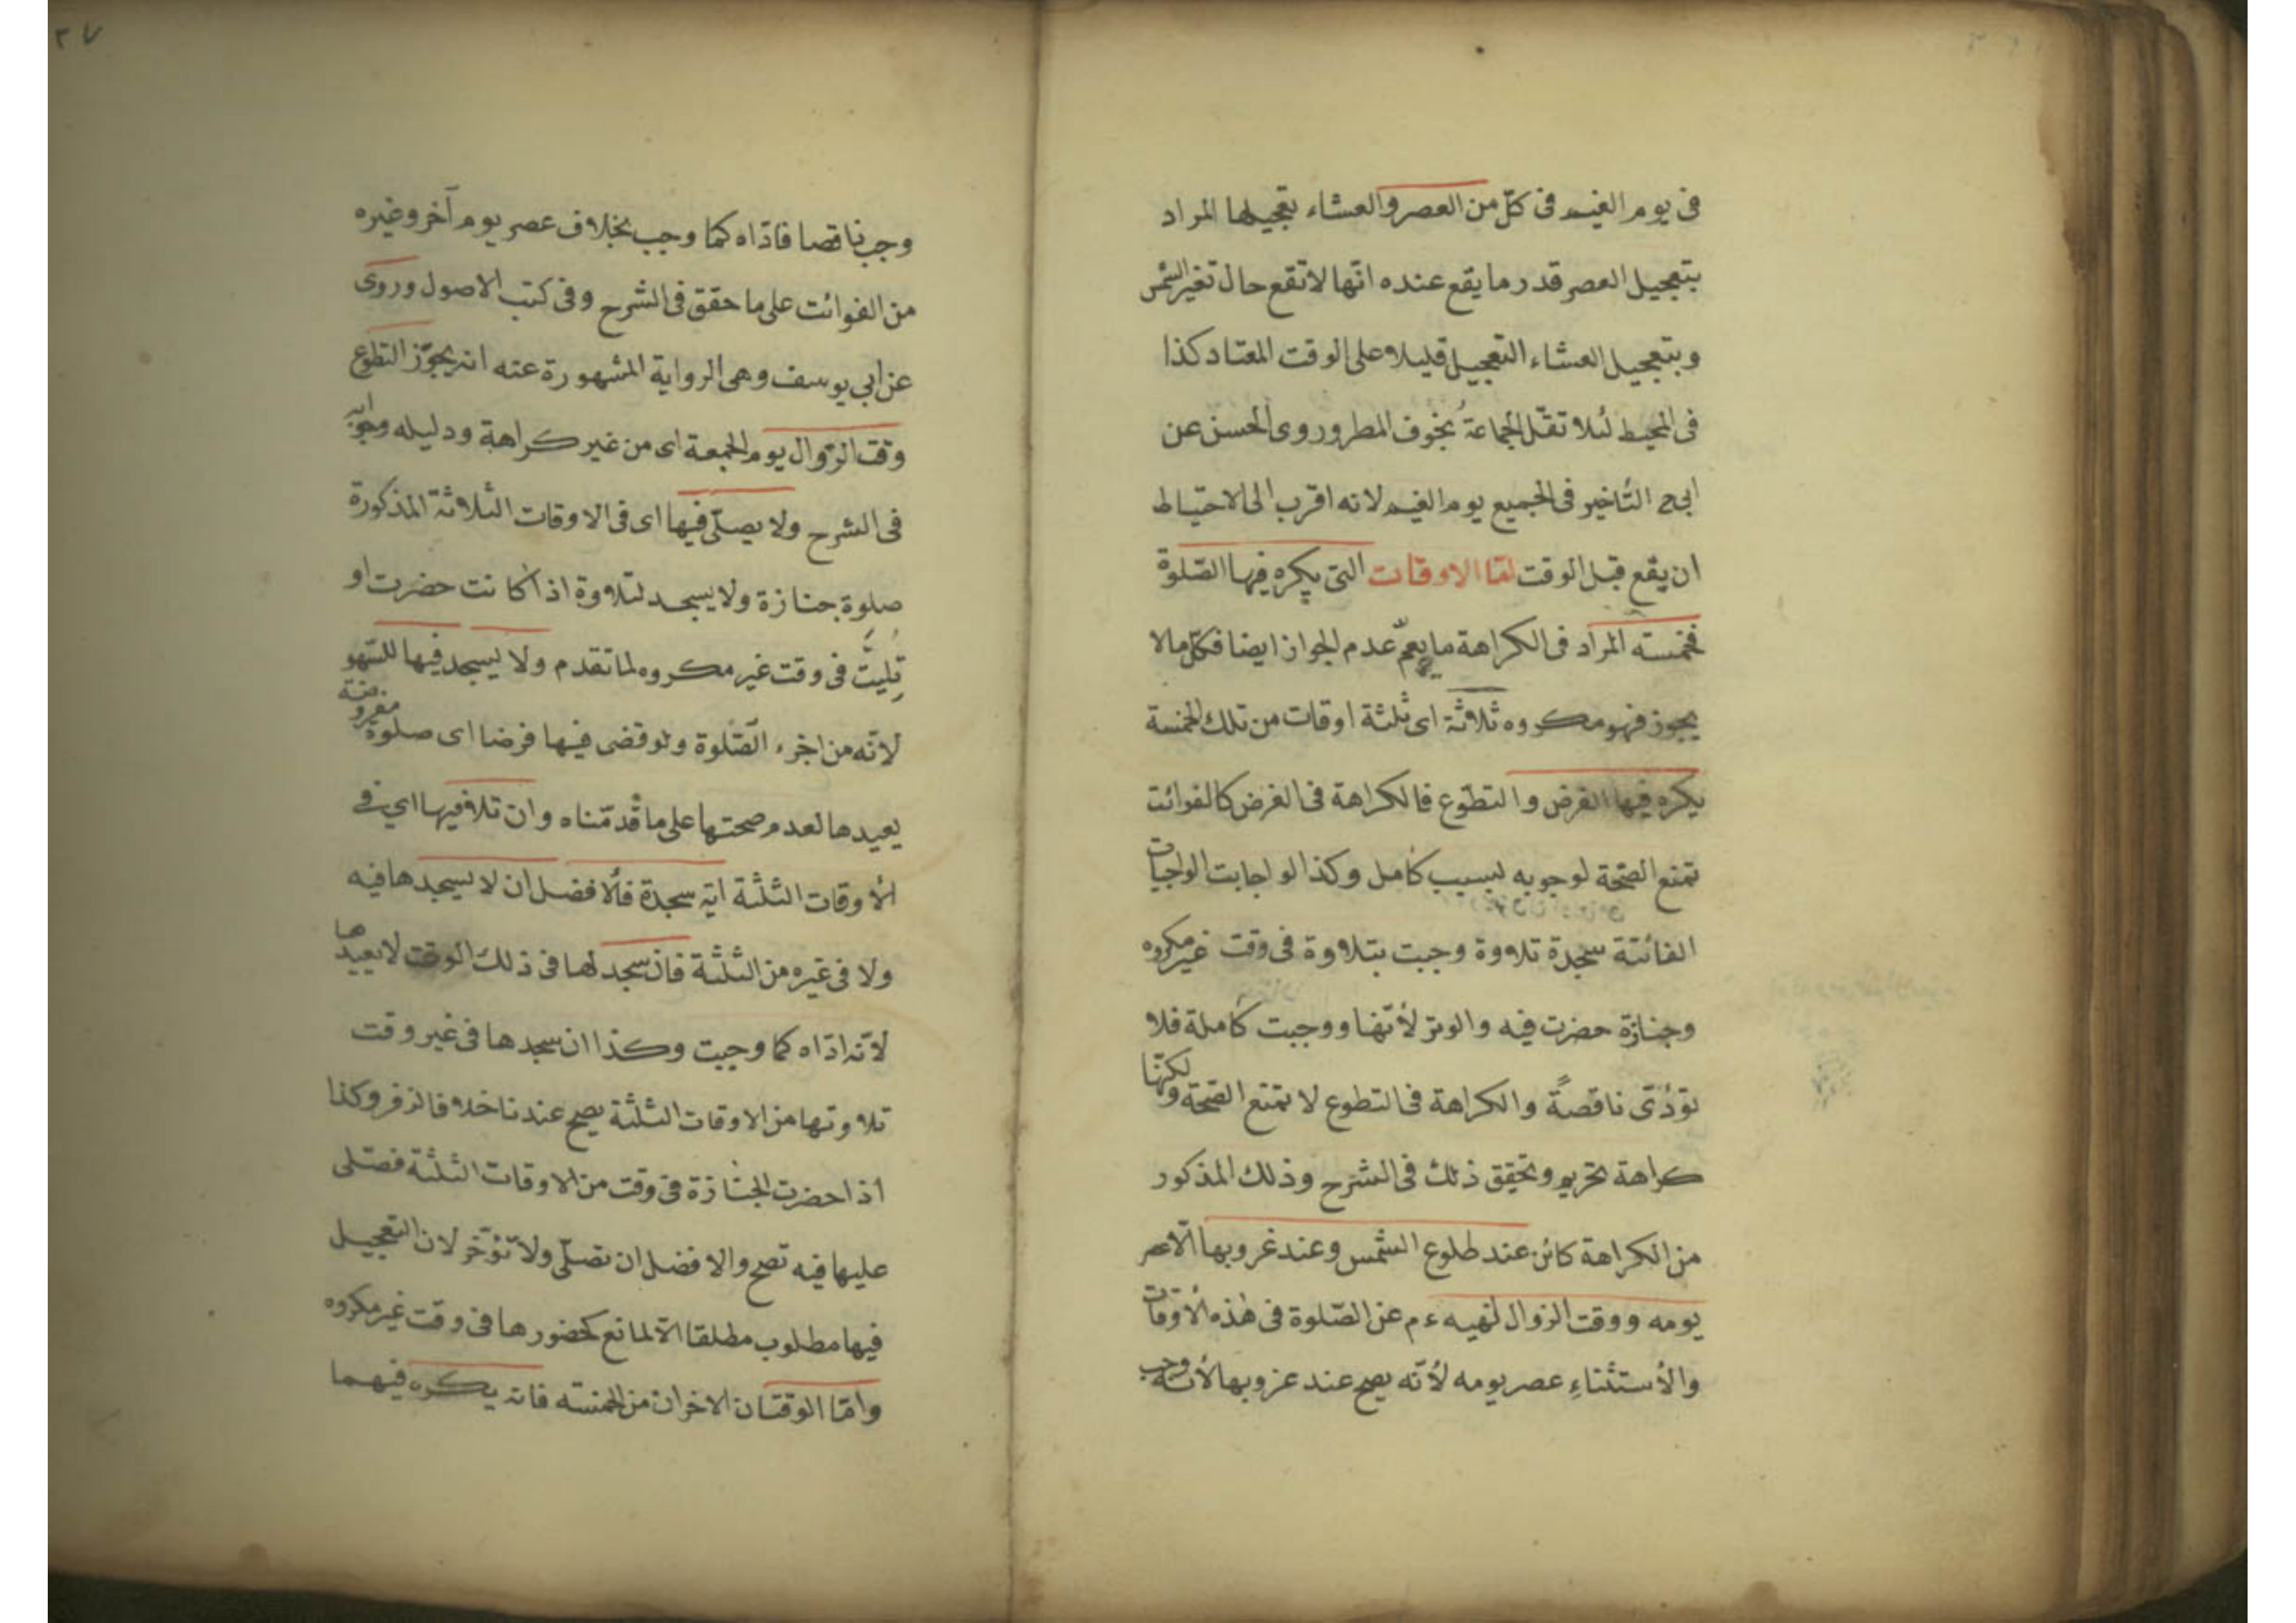 فى يوم الغيم فى كلّ من العصر والعشاء تعجيلها المراد
بتعجيل العصر قدر ما يقع عنده انّها لا تقع حال تغير الشمس
وبتعجيل العشاء التعجيل قليلا على الوقت المعتاد كذا
فى المحيط لئلا تقلّ الجماعة بخوف المطر وروى الحسن عن
ابى ح التّأخير فى الجميع يوم الغيم لانه اقرب الى الاحتياط
ان يقع قبل الوقت امّا الاوقات التى يكره فيها الصّلوة
فخمسته المراد فى الكراهة ما يعمّ عدم الجواز ايضا فكلّ ما لا
يجوز فهو مكروه ثلاثة اى ثلثة اوقات من تلك الخمسة
يكره فيها الفرض والتطوّع فالكراهة فى الفرض كالفوائت
تمنع الصّحة لوجوبه بسبب كامل وكذا الواجابت الواجبات
الفائتة سجدة تلاوة وجبت بتلاوة فى وقت غير مكروه
وجنازة حضرت فيه والوتر لأنّها ووجبت كاملة فلا
تؤدّى ناقصةً والكراهة فى التطوع لا تمنع الصّحة ولكنّها
كراهة تحريم وتحقيق ذلك فى الشرح وذلك المذكور
من الكراهة كائن عند طلوع الشمس وعند غروبها الّا عصر
يومه ووقت الزوال لنهيه ءم عن الصّلوة فى هذه الأوقات
والأستثناء عصر يومه لأنّه يصح عند غروبها لأنّه وجب
٢٧
وجب ناقصا فادّاه كما وجب بخلاف عصر يوم آخر وغيره
من الفوائت على ما حقق فى الشرح وفى كتب الاصول وروى
عن ابي يوسف وهى الرواية المشهورة عنه انه يجوّز التطوع
وقت الزّوال يوم الجمعة اى من غير كراهة ودليله وجوابه
فى الشرح ولا يصلّى فيها اى فى الاوقات الثلاثة المذكورة
صلوة جنازة ولا يسجد لتلاوة اذا كانت حضرت او
تليت فى وقت غير مكروه لما تقدم ولا يسجد فيها للسّهو
لانّه من اجزء الصّلوة ولو قضى فيها فرضا اى صلوة مفروضة
يعيدها لعدم صحتها على ما قدمّناه وان تلا فيها اي فى
الأوقات الثلثة آية سجدة فالأفضل ان لا يسجدها فيه
ولا فى غيره من الثلثة فان سجد لها فى ذلك الوقت لا يعيدها
لأنّه ادّاه كما وجبت وكذا ان سجدها فى غير وقت
تلاوتها من الاوقات الثلثة يصح عندنا خلافا لزفر وكذا
اذا حضرت الجنازة فى وقت من الاوقات الثلثة فصلى
عليها فيه تصح والافضل ان تصلّى ولا تؤخّر لان التعجيل
فيها مطلوب مطلقا الّا لمانع كحضورها فى وقت غير مكروه
وامّا الوقتان الاخران من الخمسته فانه يكره فيهما